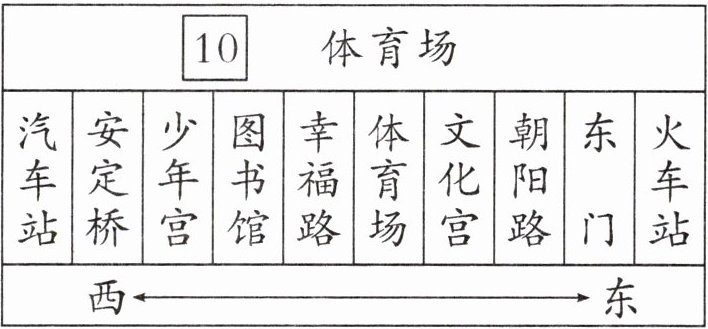 10 体育场
汽车站
安定桥
少年宫
图书馆
幸福路
体育场
文化宫
朝阳路
东门
火车站
西 东